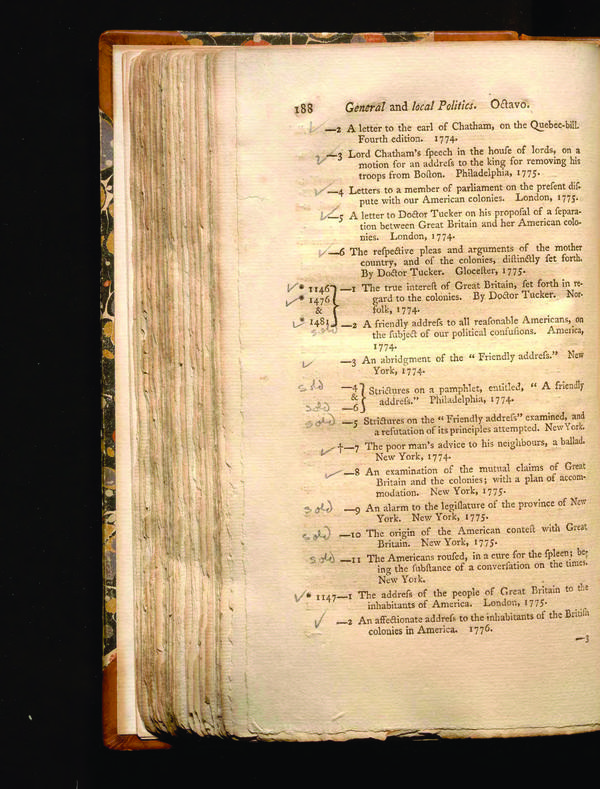 188 General and local Politics. Octavo.
—2 A letter to the earl of Chatham, on the Quebec-bill.
Fourth edition. 1774.
—3 Lord Chatham's ſpeech in the houſe of lords, on a
motion for an addreſs to the king for removing his
troops from Boſton. Philadelphia, 1775.
—4 Letters to a member of parliament on the preſent diſ-
pute with our American colonies. London, 1775.
—5 A letter to Doctor Tucker on his propoſal of a ſepara-
tion between Great Britain and her American colo-
nies. London, 1774.
—6 The reſpective pleas and arguments of the mother
country, and of the colonies, diſtinctly ſet forth.
By Doctor Tucker. Gloceſter, 1775.
* 1146 —1 The true intereſt of Great Britain, ſet forth in re-
* 1476 gard to the colonies. By Doctor Tucker. Nor-
& folk, 1774.
* 1481 —2 A friendly addreſs to all reaſonable Americans, on
sold the ſubject of our political confuſions. America,
1774.
—3 An abridgment of the “ Friendly addreſs.” New
York, 1774.
sold —4
& Strictures on a pamphlet, entitled, “ A friendly
sold —6 addreſs.” Philadelphia, 1774.
sold —5 Strictures on the “ Friendly addreſs” examined, and
a refutation of its principles attempted. New York.
†—7 The poor man's advice to his neighbours, a ballad.
New York, 1774.
—8 An examination of the mutual claims of Great
Britain and the colonies; with a plan of accom-
modation. New York, 1775.
sold —9 An alarm to the legiſlature of the province of New
York. New York, 1775.
sold —10 The origin of the American conteſt with Great
Britain. New York, 1775.
sold —11 The Americans rouſed, in a cure for the ſpleen; be-
ing the ſubſtance of a converſation on the times.
New York.
* 1147—1 The addreſs of the people of Great Britain to the
inhabitants of America. London, 1775.
—2 An affectionate addreſs to the inhabitants of the Britiſh
colonies in America. 1776.
—3